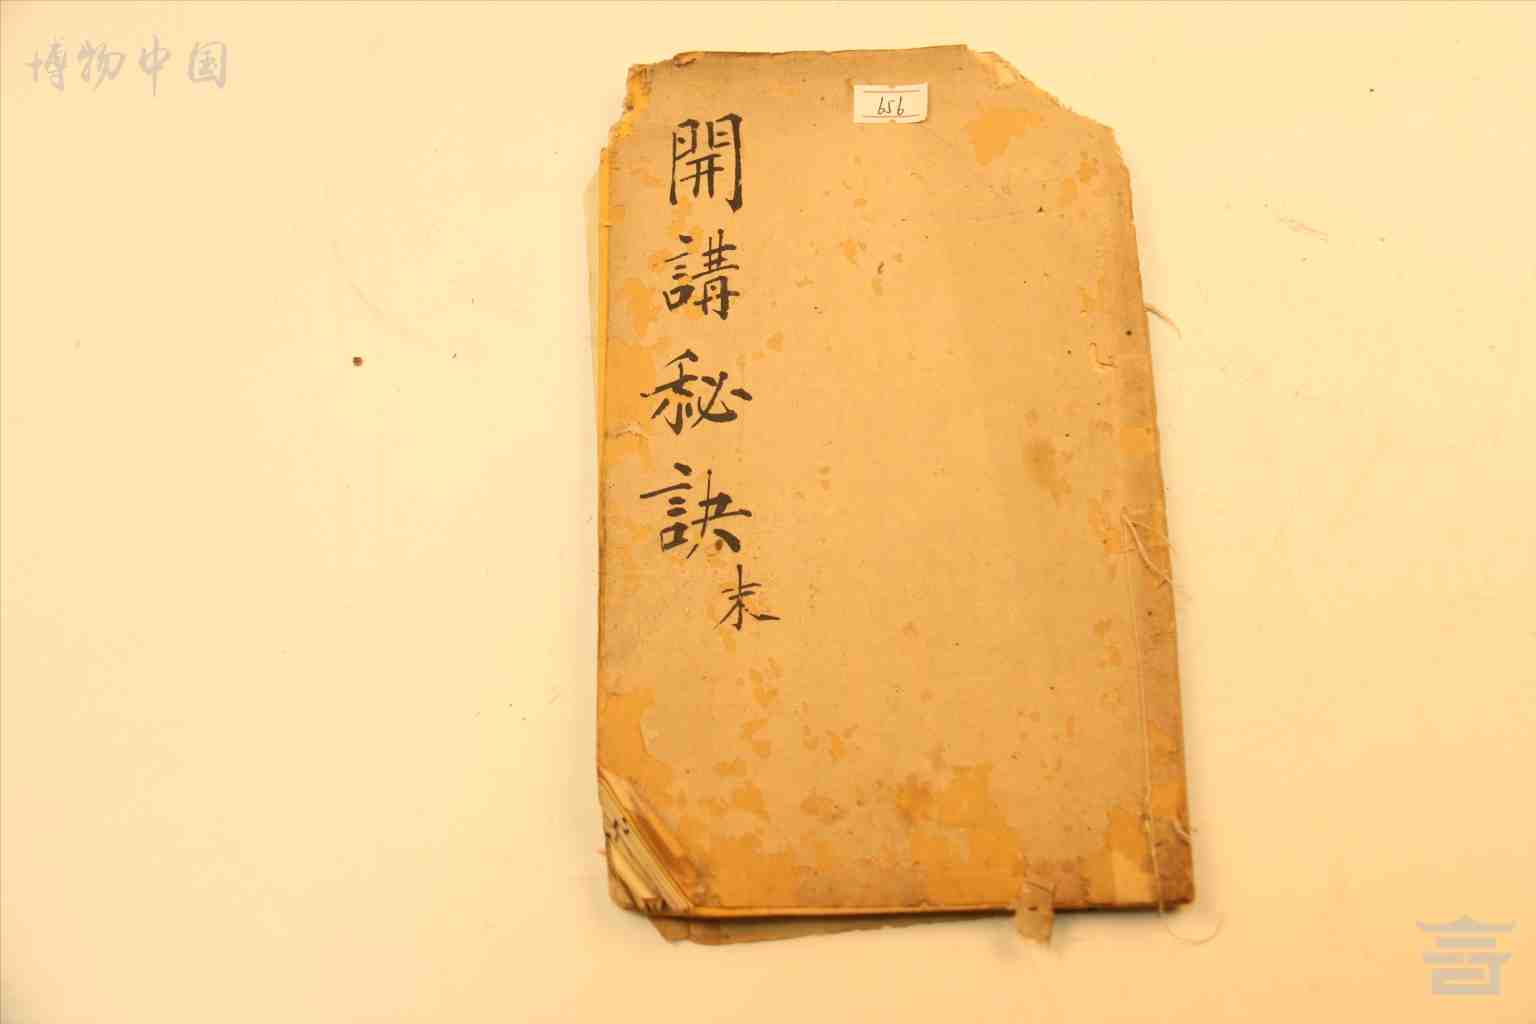 博物中国
656
開講秘訣
末